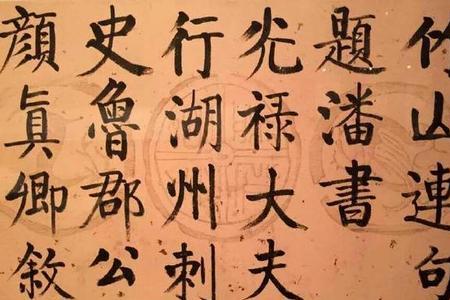 竹山連句
題潘書
光禄大夫
行湖州刺
史魯郡公
顔真卿敘